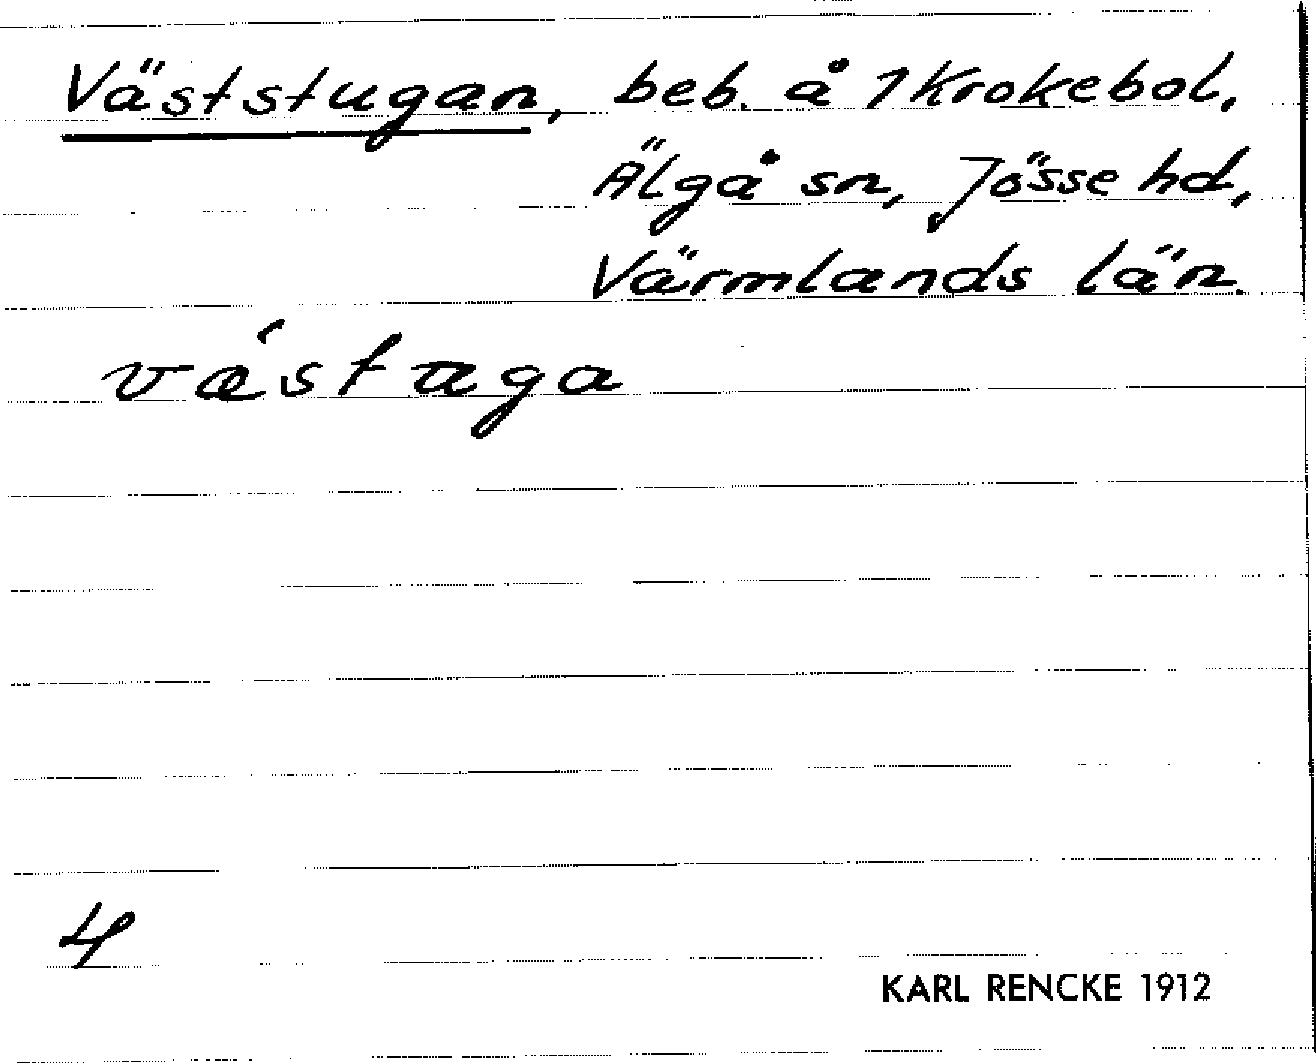 Väststugan, beb. å 1 Krokebol,
Älgå sn, Jösse hd,
Värmlands län.
væ´staga
4
KARL RENCKE 1912